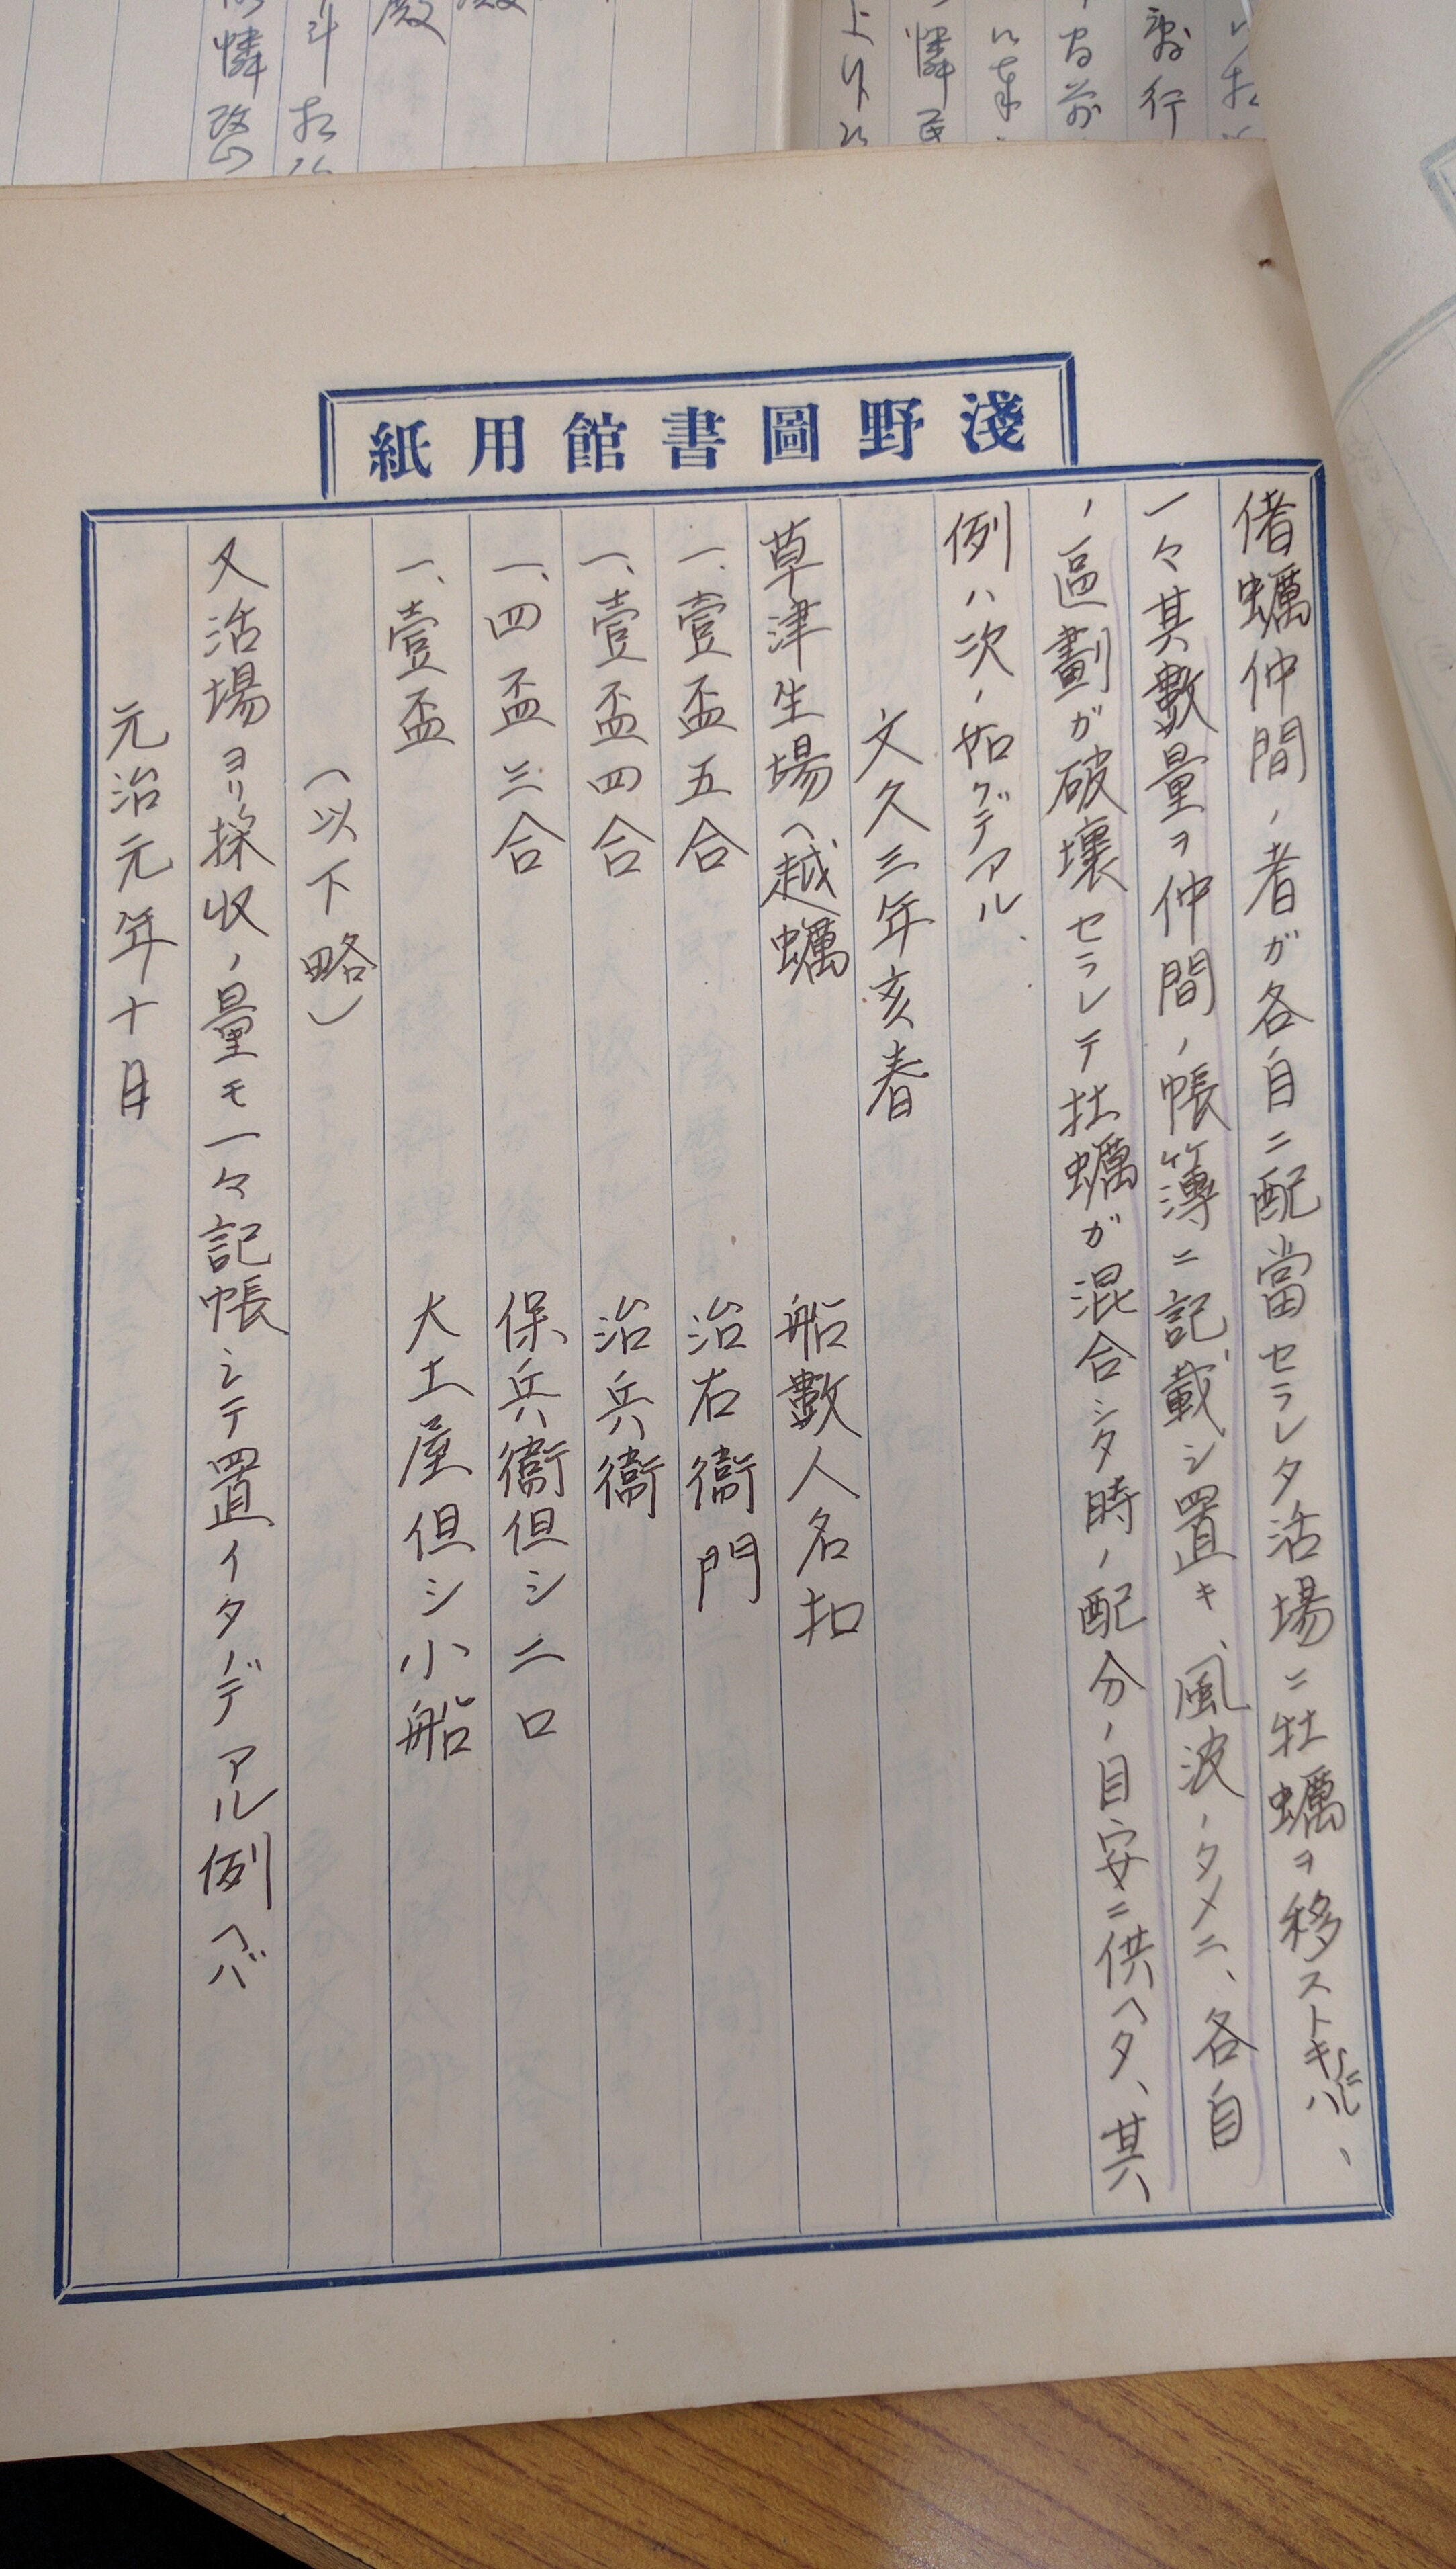 淺野圖書館用紙
偖蠣仲間ノ者ガ各自ニ配當セラレタ活場ニ牡蠣ヲ移ストキニハ、
一々其數量ヲ仲間ノ帳簿ニ記載シ置キ、風波ノタメニ、各自
ノ區劃ガ破壞セラレテ牡蠣ガ混合シタ時ノ配分ノ目安ニ供ヘタ、其
例ハ次ノ如クデアル
文久三年亥春
草津生場ヘ越蠣 船數人名扣
一、壹盃五合 治右衞門
一、壹盃四合 治兵衞
一、四盃三合 保兵衞但シ二口
一、壹盃 大土屋但シ小船
(以下略)
又活場ヨリ採収ノ量モ一々記帳シテ置イタノデアル例ヘバ
元治元年十月